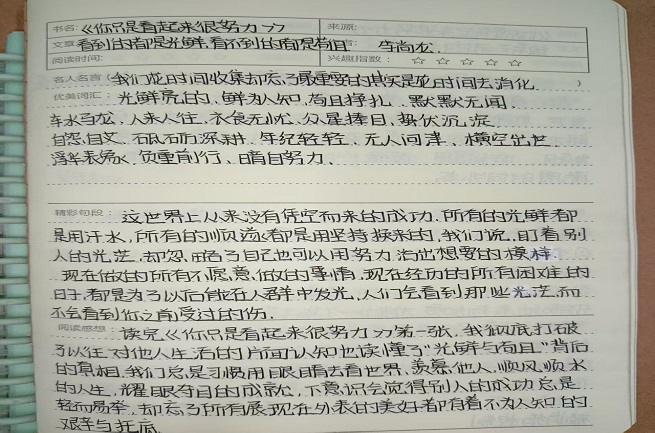 书名:《你只是看起来很努力》 来源:
文章 看到的都是光鲜,看不到的都是苟且 李尚龙.
阅读时间: 兴趣指数: ☆ ☆ ☆ ☆ ☆
名人名言( 我们花时间收集却忘了最重要的其实是花时间去消化. )
优美词汇: 光鲜亮的、鲜为人知、苟且挣扎、默默无闻、
车水马龙、人来人往、衣食无忧、众星捧月、蛰伏沉淀
自怨自艾、砥砺深耕、年纪轻轻、无人问津、横空出世
落笔来缘水、负重前行、暗自努力.
精彩句段: 这世界上从来没有凭空而来的成功,所有的光鲜都
是用汗水,所有的顺遂都是用坚持换来的,我们说,盯着别
人的光茫,却忽略了自己也可以用努力活成想要的模样.
现在做的所有不愿意做的事情,现在经历的所有困难的
日子,都是为了以后能在人群中发光,人们会看到那些光茫,而
不会看到你之前受过的伤.
阅读感想: 读完《你只是看起来很努力》第一张,我彻底打破
了以往对他人生活的片面认知也读懂了“光鲜与苟且”背后
的真相,我们总是习惯用眼睛去看世界,羡慕他人,顺风顺水
的人生,耀眼夺目的成就,下意识会觉得别人的成功总是
轻而易举,却忘了所有展现在外表的美好都有着不为人知的
艰辛与托底.